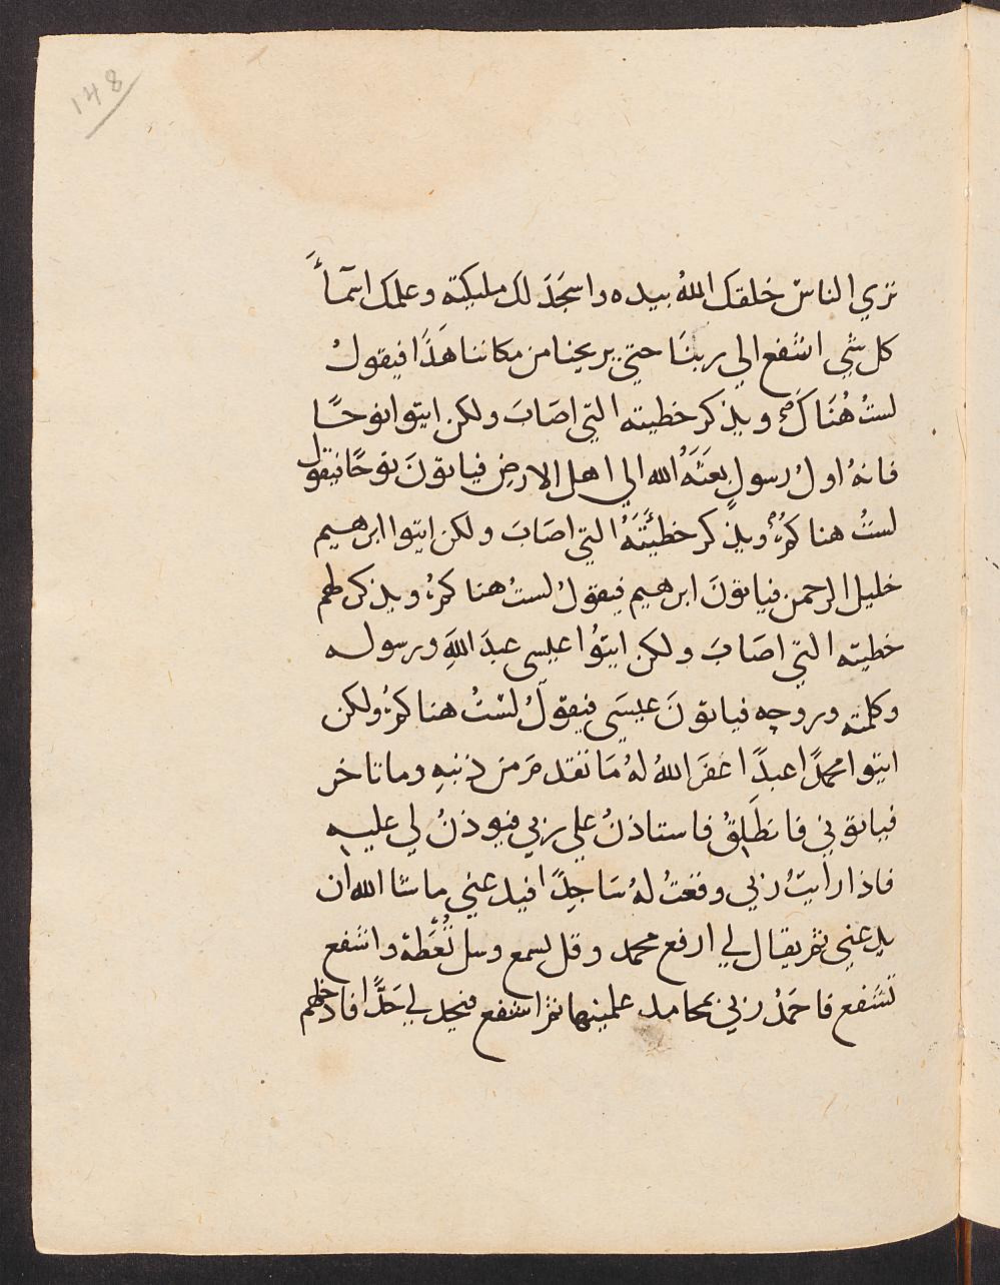 ١٤٨
تري الناسَ خلقك اللهُ بيده واسجَدَ لك مليكته وعلمك اسمآءَ
كل شي اشفع الي ربنَا حتي يريحنا من مكاننا هَذَا فيقولُ
لستُ هُنَاكَ ويذكر خطيته التي اصَابَ ولكن ايتوا نوحًا
فانهُ اولُ رسولٍ بعَثَهُ الله الي اهل الارض فياتونَ نوحًا فيقول
لستُ هناكمُ ويذكر خطيئَتَهُ التي اصَابَ ولكن ايتوا ابرهيم
خليل الرحمن فياتونَ ابرهيم فيقولُ لستُ هناكمُ ويذكر لهم
خطيته التي اصَابَ ولكن ايتوُا عيسي عبدَ اللهَِ ورسوله
وكلمته وروحه فياتونَ عيسَي فيقولُ لسْتُ هناكمُ ولكن
ايتوا محمدًا عبدًا غفَرَ اللهُ لهُ مَا تقدمَ من ذنبهِ وما تاخر
فياتوني فانطَلِقُ فاستاذنُ علي ربي فيوذنُ لي عليهِ
فاذا رايتُ ربي وقعتُ لهُ سَاجِدًا فيدعني ماشا الله ان
يدعني ثم يقال لي ارفع محمد وقل يسمع وسل تُعْطهْ واشفع
تشَفع فاحمَدُ ربي بمحامد علمنيها ثم اشفع فيحد لي حَدًّا فادخلهم